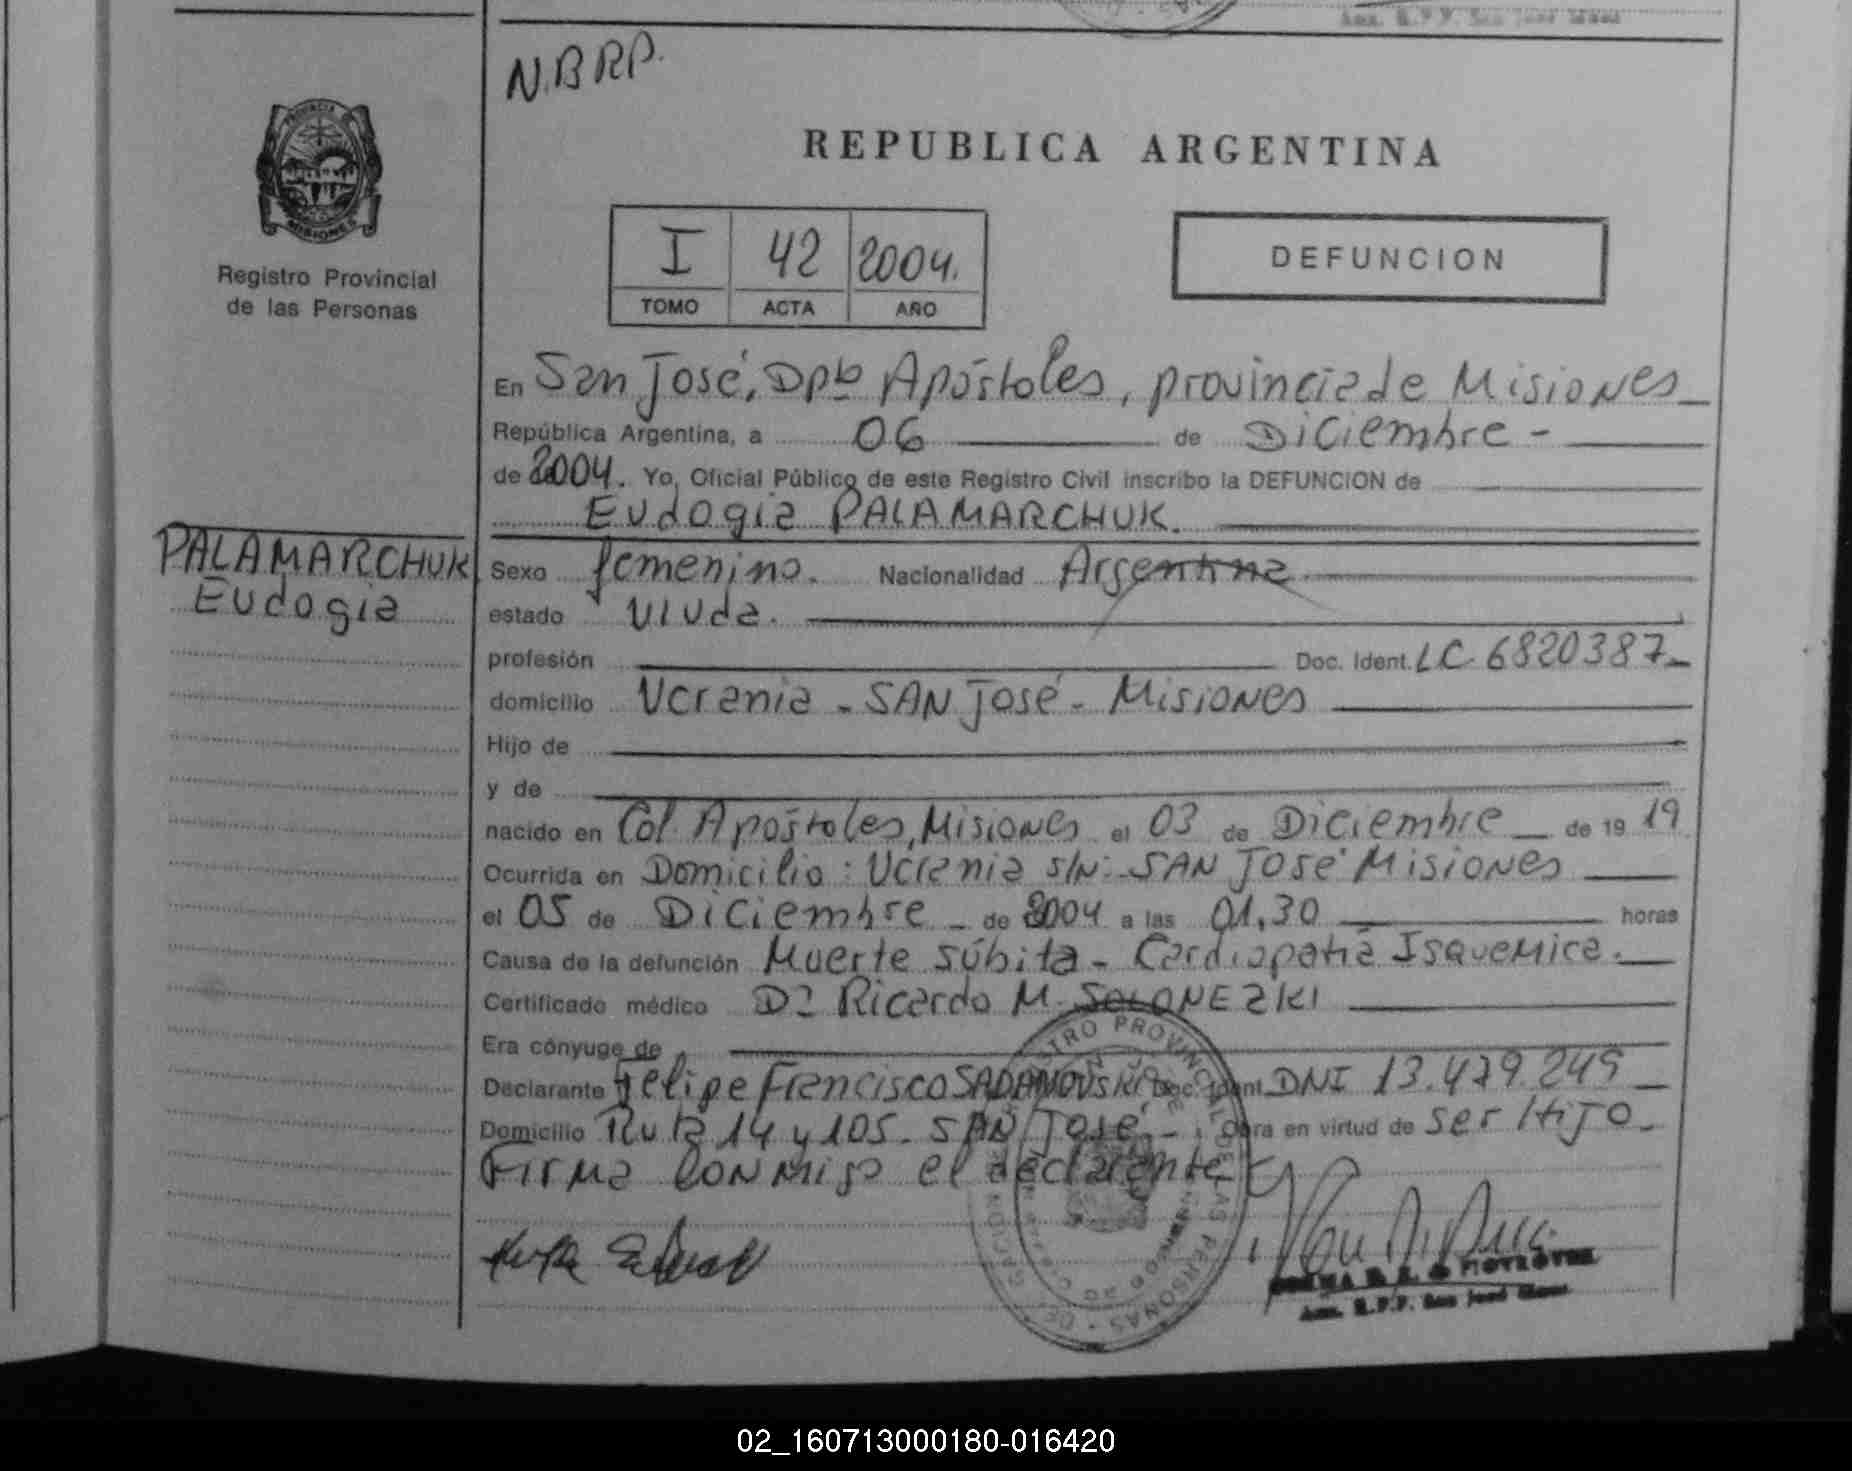 N.B.R.P.
PROVINCIA
MISIONES
Registro Provincial
de las Personas
REPUBLICA ARGENTINA
I 42 2004.
TOMO ACTA AÑO
DEFUNCION
En San José, Dpto Apóstoles, provincia de Misiones
República Argentina, a 06 de Diciembre -
de 2004. Yo, Oficial Público de este Registro Civil inscribo la DEFUNCION de
Eudogia PALAMARCHUK.
PALAMARCHUK
Eudogia
Sexo femenino. Nacionalidad Argentina
estado viuda.
profesión Doc. Ident. LC 6820387-
domicilio Ucrania - SAN José - Misiones
Hijo de
y de
nacido en Col. Apóstoles, Misiones el 03 de Diciembre de 19 19
Ocurrida en Domicilio: Ucrania s/N: SAN José Misiones
el 05 de Diciembre - de 2004 a las 01,30 horas
Causa de la defunción Muerte súbita - Cardiopatía Isquemica.
Certificado médico Dr Ricardo M. SOLONEZKI
Era cónyuge de
Declarante Felipe Francisco SADANOVSKI Doc. Ident. DNI 13.479.249
Domicilio Ruta 14 y 105 - SAN José - Obra en virtud de ser Hijo -
Firma conmigo el declarante
REGISTRO PROVINCIAL DE LAS PERSONAS
Aux. R.P.P. San José Mnes
02_160713000180-016420